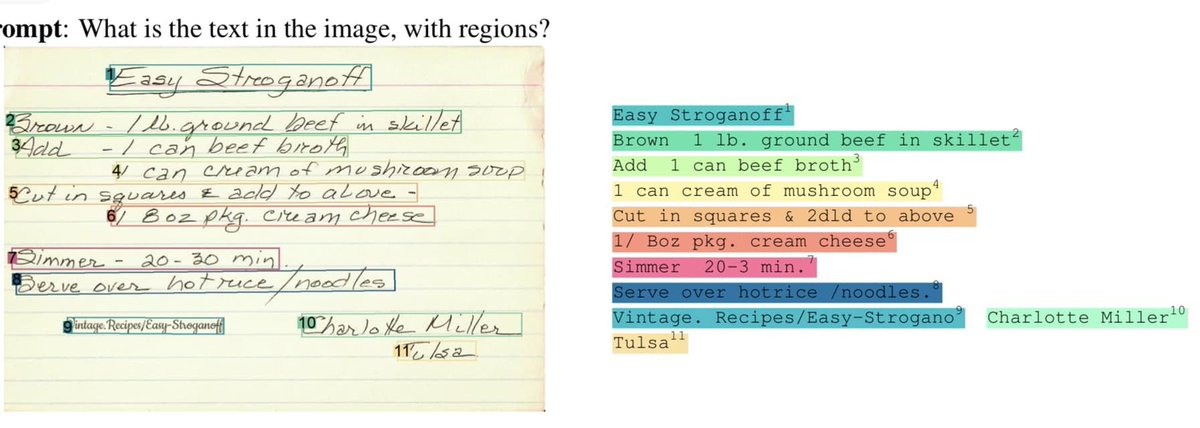 ompt: What is the text in the image, with regions?
1 Easy Stroganoff
2 Brown - 1 lb. ground beef in skillet
3 Add - 1 can beef broth
4 1 can cream of mushroom soup
5 Cut in squares & add to above -
6 1 8 oz pkg. cream cheese
7 Simmer - 20-30 min.
8 Serve over hot rice /noodles
9 Vintage.Recipes/Easy-Stroganoff
10 Charlotte Miller
11 Tulsa
Easy Stroganoff1
Brown 1 lb. ground beef in skillet2
Add 1 can beef broth3
1 can cream of mushroom soup4
Cut in squares & 2dld to above 5
1/ Boz pkg. cream cheese6
Simmer 20-3 min.7
Serve over hotrice /noodles.8
Vintage. Recipes/Easy-Strogano9 Charlotte Miller10
Tulsa11